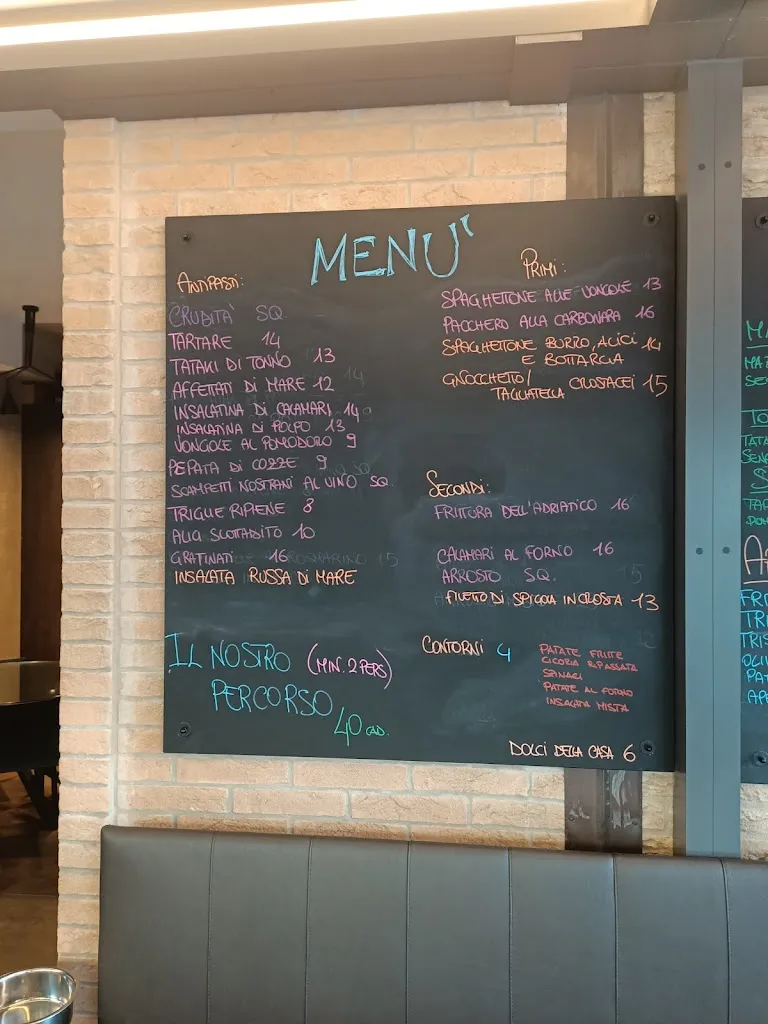 MENU'
ANTIPASTI:
CRUDITÀ SQ.
TARTARE 14
TATAKI DI TONNO 13
AFFETTATI DI MARE 12
INSALATINA DI CALAMARI 14
INSALATINA DI POLPO 13
VONGOLE AL POMODORO 9
PEPATA DI COZZE 9
SCAMPETTI NOSTRANI AL VINO SQ.
TRIGLIE RIPIENE 8
ALICI SCOTTADITO 10
GRATINATI 16
INSALATA RUSSA DI MARE
IL NOSTRO (MIN. 2 PERS)
PERCORSO
40 CAD.
PRIMI:
SPAGHETTONE ALLE VONGOLE 13
PACCHERO ALLA CARBONARA 16
SPAGHETTONE BURRO, ALICI 14
E BOTTARGA
GNOCCHETTO/ CROSTACEI 15
TAGLIATELLA
SECONDI:
FRITTURA DELL'ADRIATICO 16
CALAMARI AL FORNO 16
ARROSTO SQ.
FILETTO DI SPIGOLA IN CROSTA 13
CONTORNI 4
PATATE FRITTE
CICORIA RIPASSATA
SPINACI
PATATE AL FORNO
INSALATA MISTA
DOLCI DELLA CASA 6